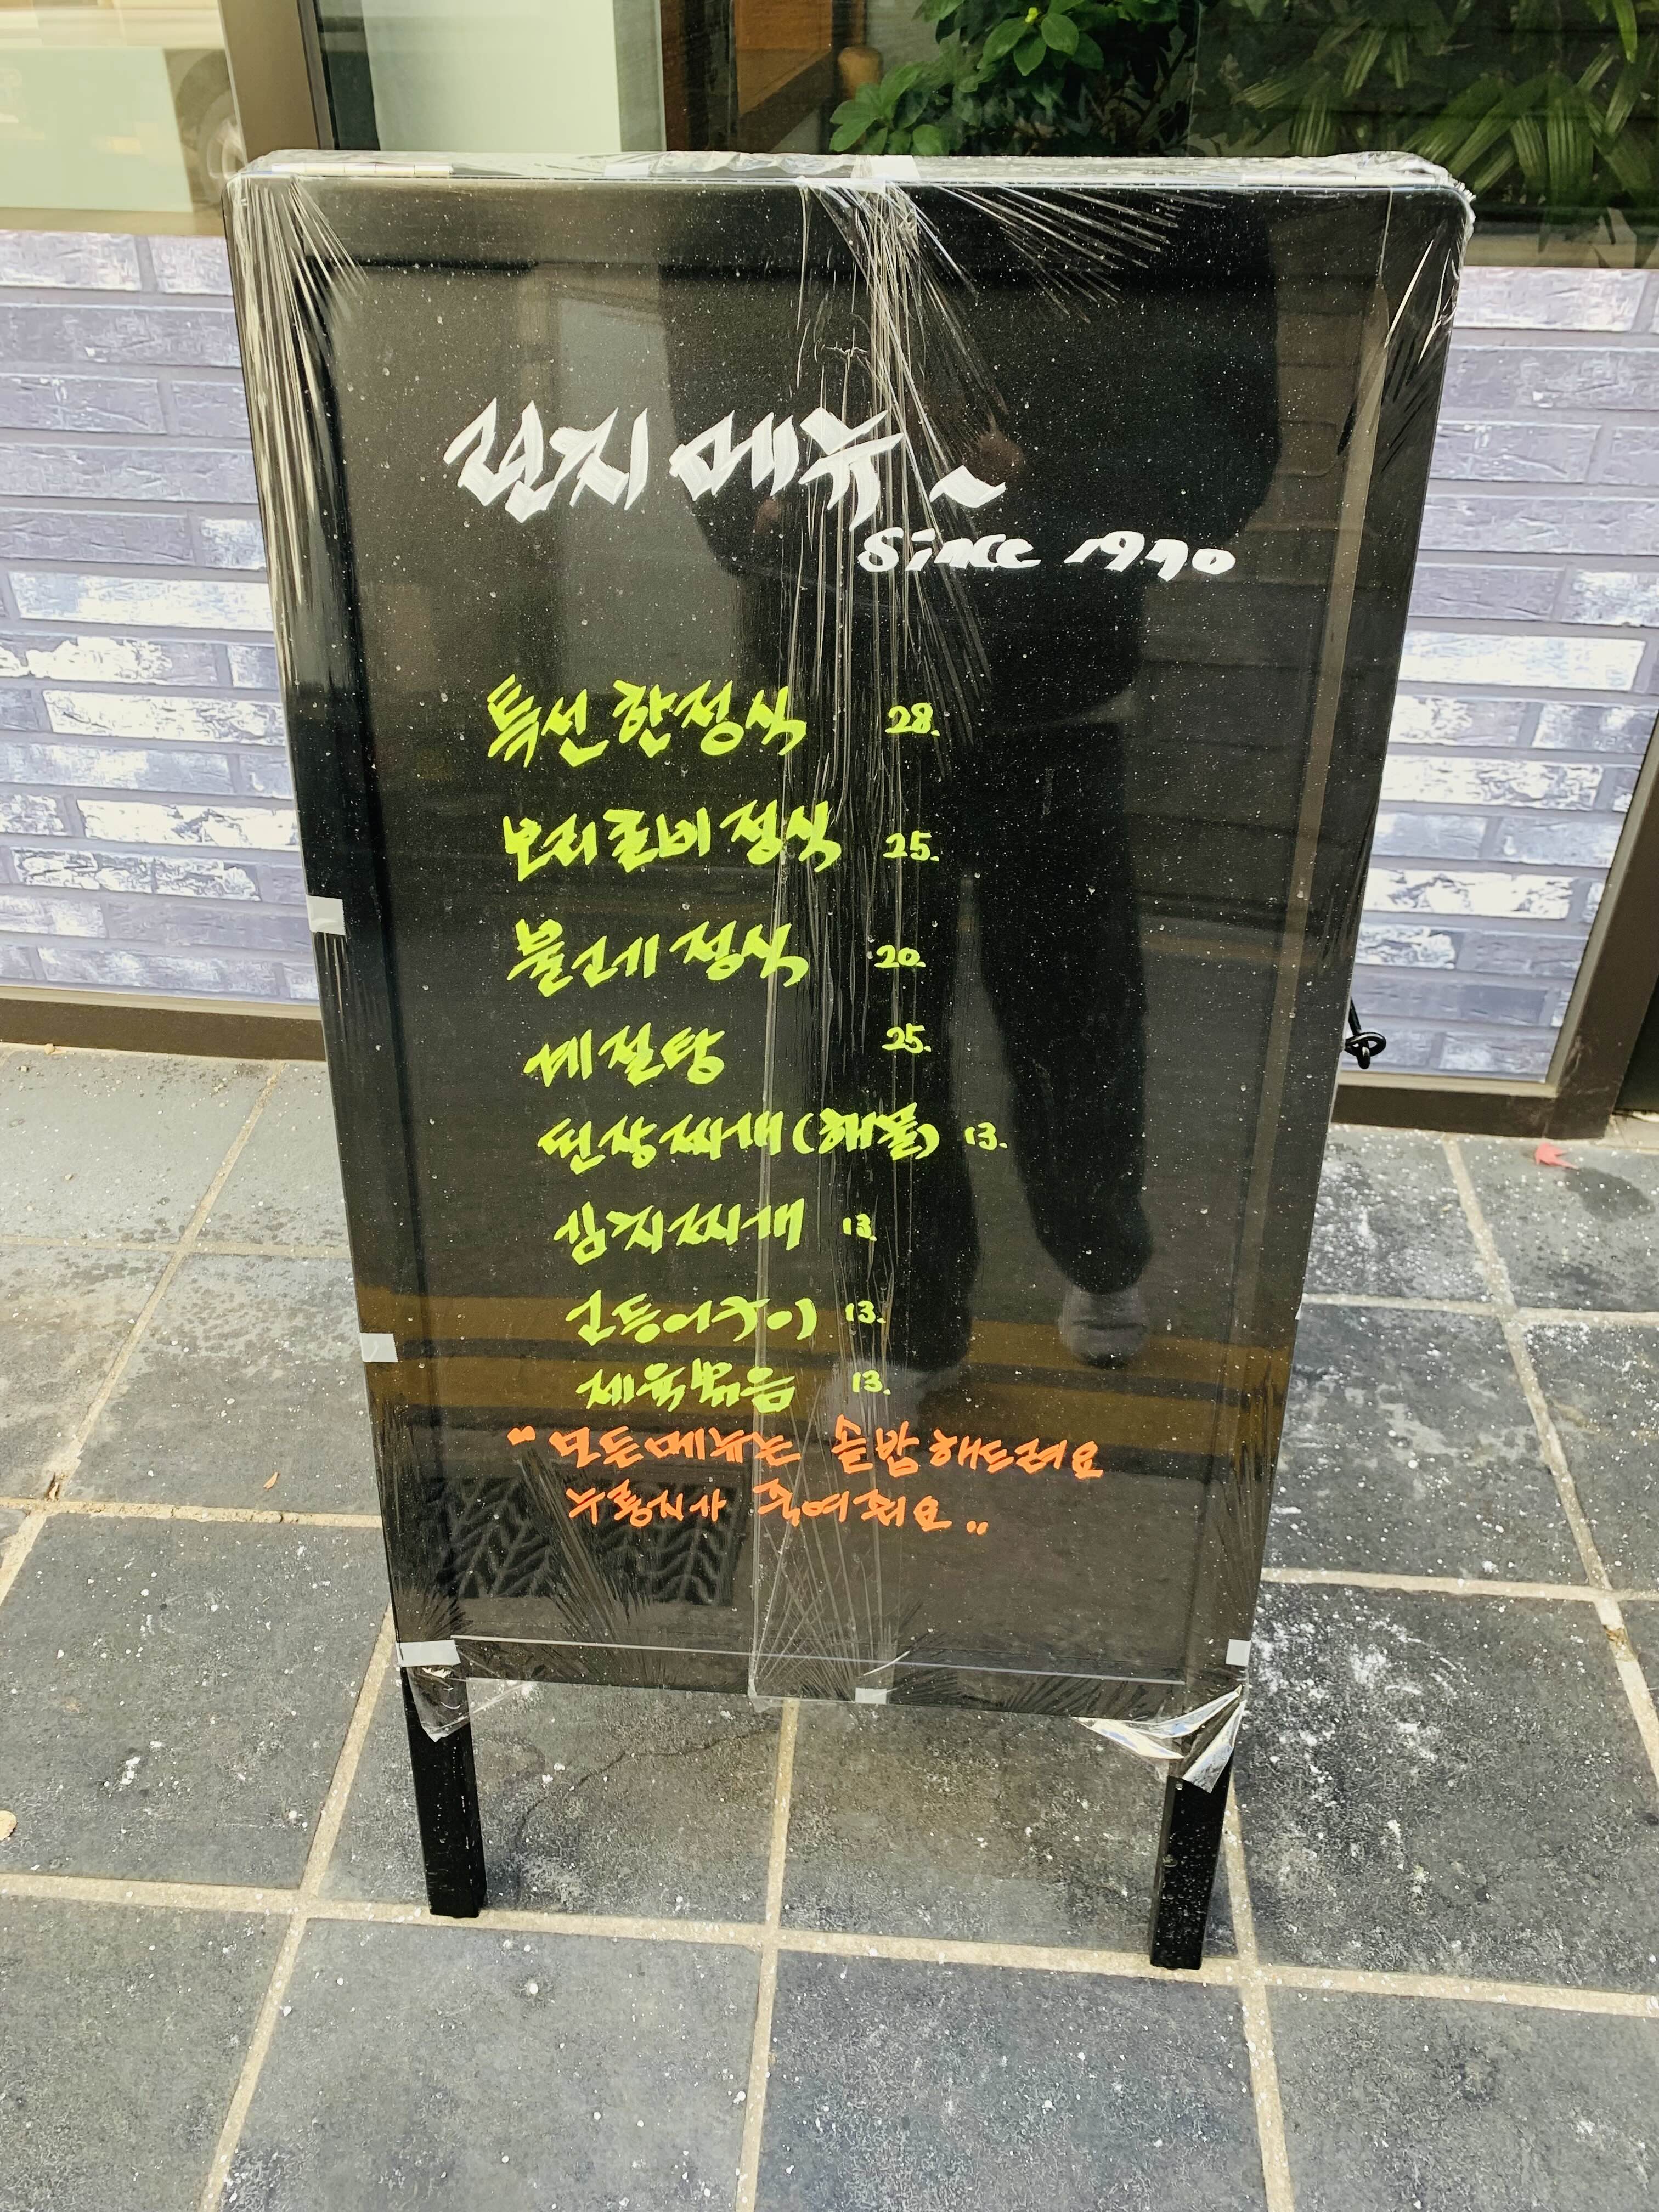 런치 메뉴~
Since 1990
특선 한정식 28.
보리굴비 정식 25.
불고기 정식 20.
계절탕 25.
된장찌개(해물) 13.
김치찌개 13.
고등어구이 13.
제육볶음 13.
"모든메뉴는 솥밥해드려요
누룽지가 죽여줘요"